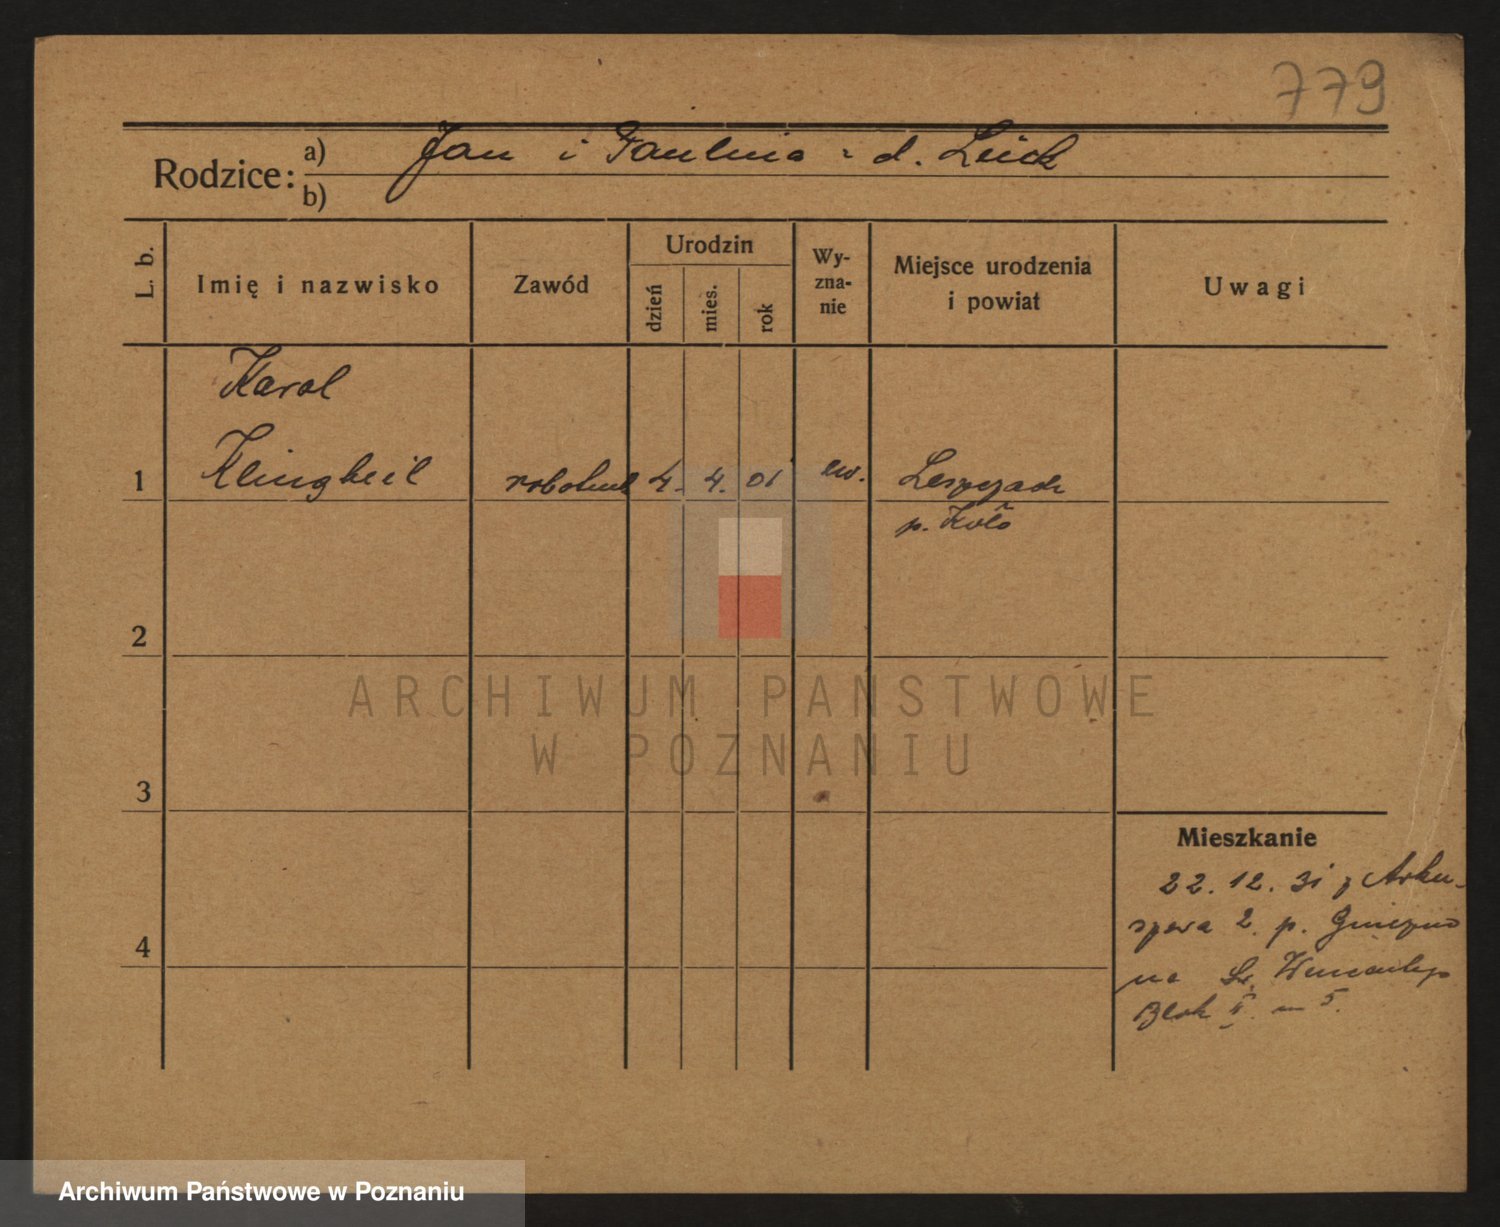 779
Rodzice: a) Jan i Paulina z d. Leick
b)
L. b.
Imię i nazwisko
Zawód
Urodzin
dzień
mies.
rok
Wy-
zna-
nie
Miejsce urodzenia
i powiat
Uwagi
Karol
1 Klingbeil robotnik 4. 4. 01 ew.
p. Koło
2
3
4
Mieszkanie
22. 12. 31 z Arku-
2. p. Gniezno
na Św. Wawrzyńca
Blok II. m 5.
ARCHIWUM PAŃSTWOWE
W POZNANIU
Archiwum Państwowe w Poznaniu